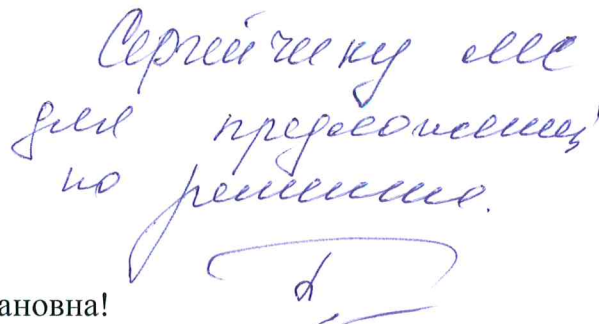 Сергейчику МС
для предложений
по решению.
ановна!